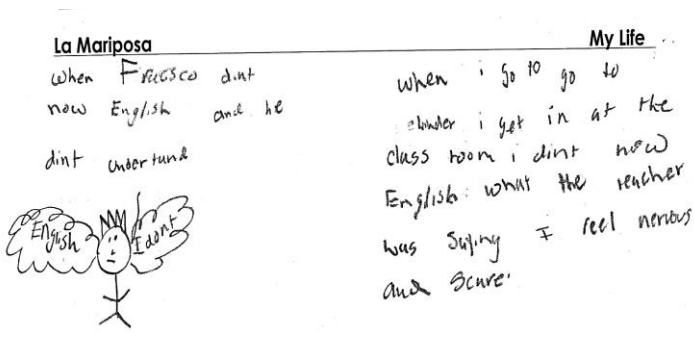 La Mariposa
when Frucsco dint
now English and he
dint undertund
English
I dont
My Life
when i go to go to
i get in at the
class room i dint now
English. what the teacher
was Saying I feel nervous
and Scare.